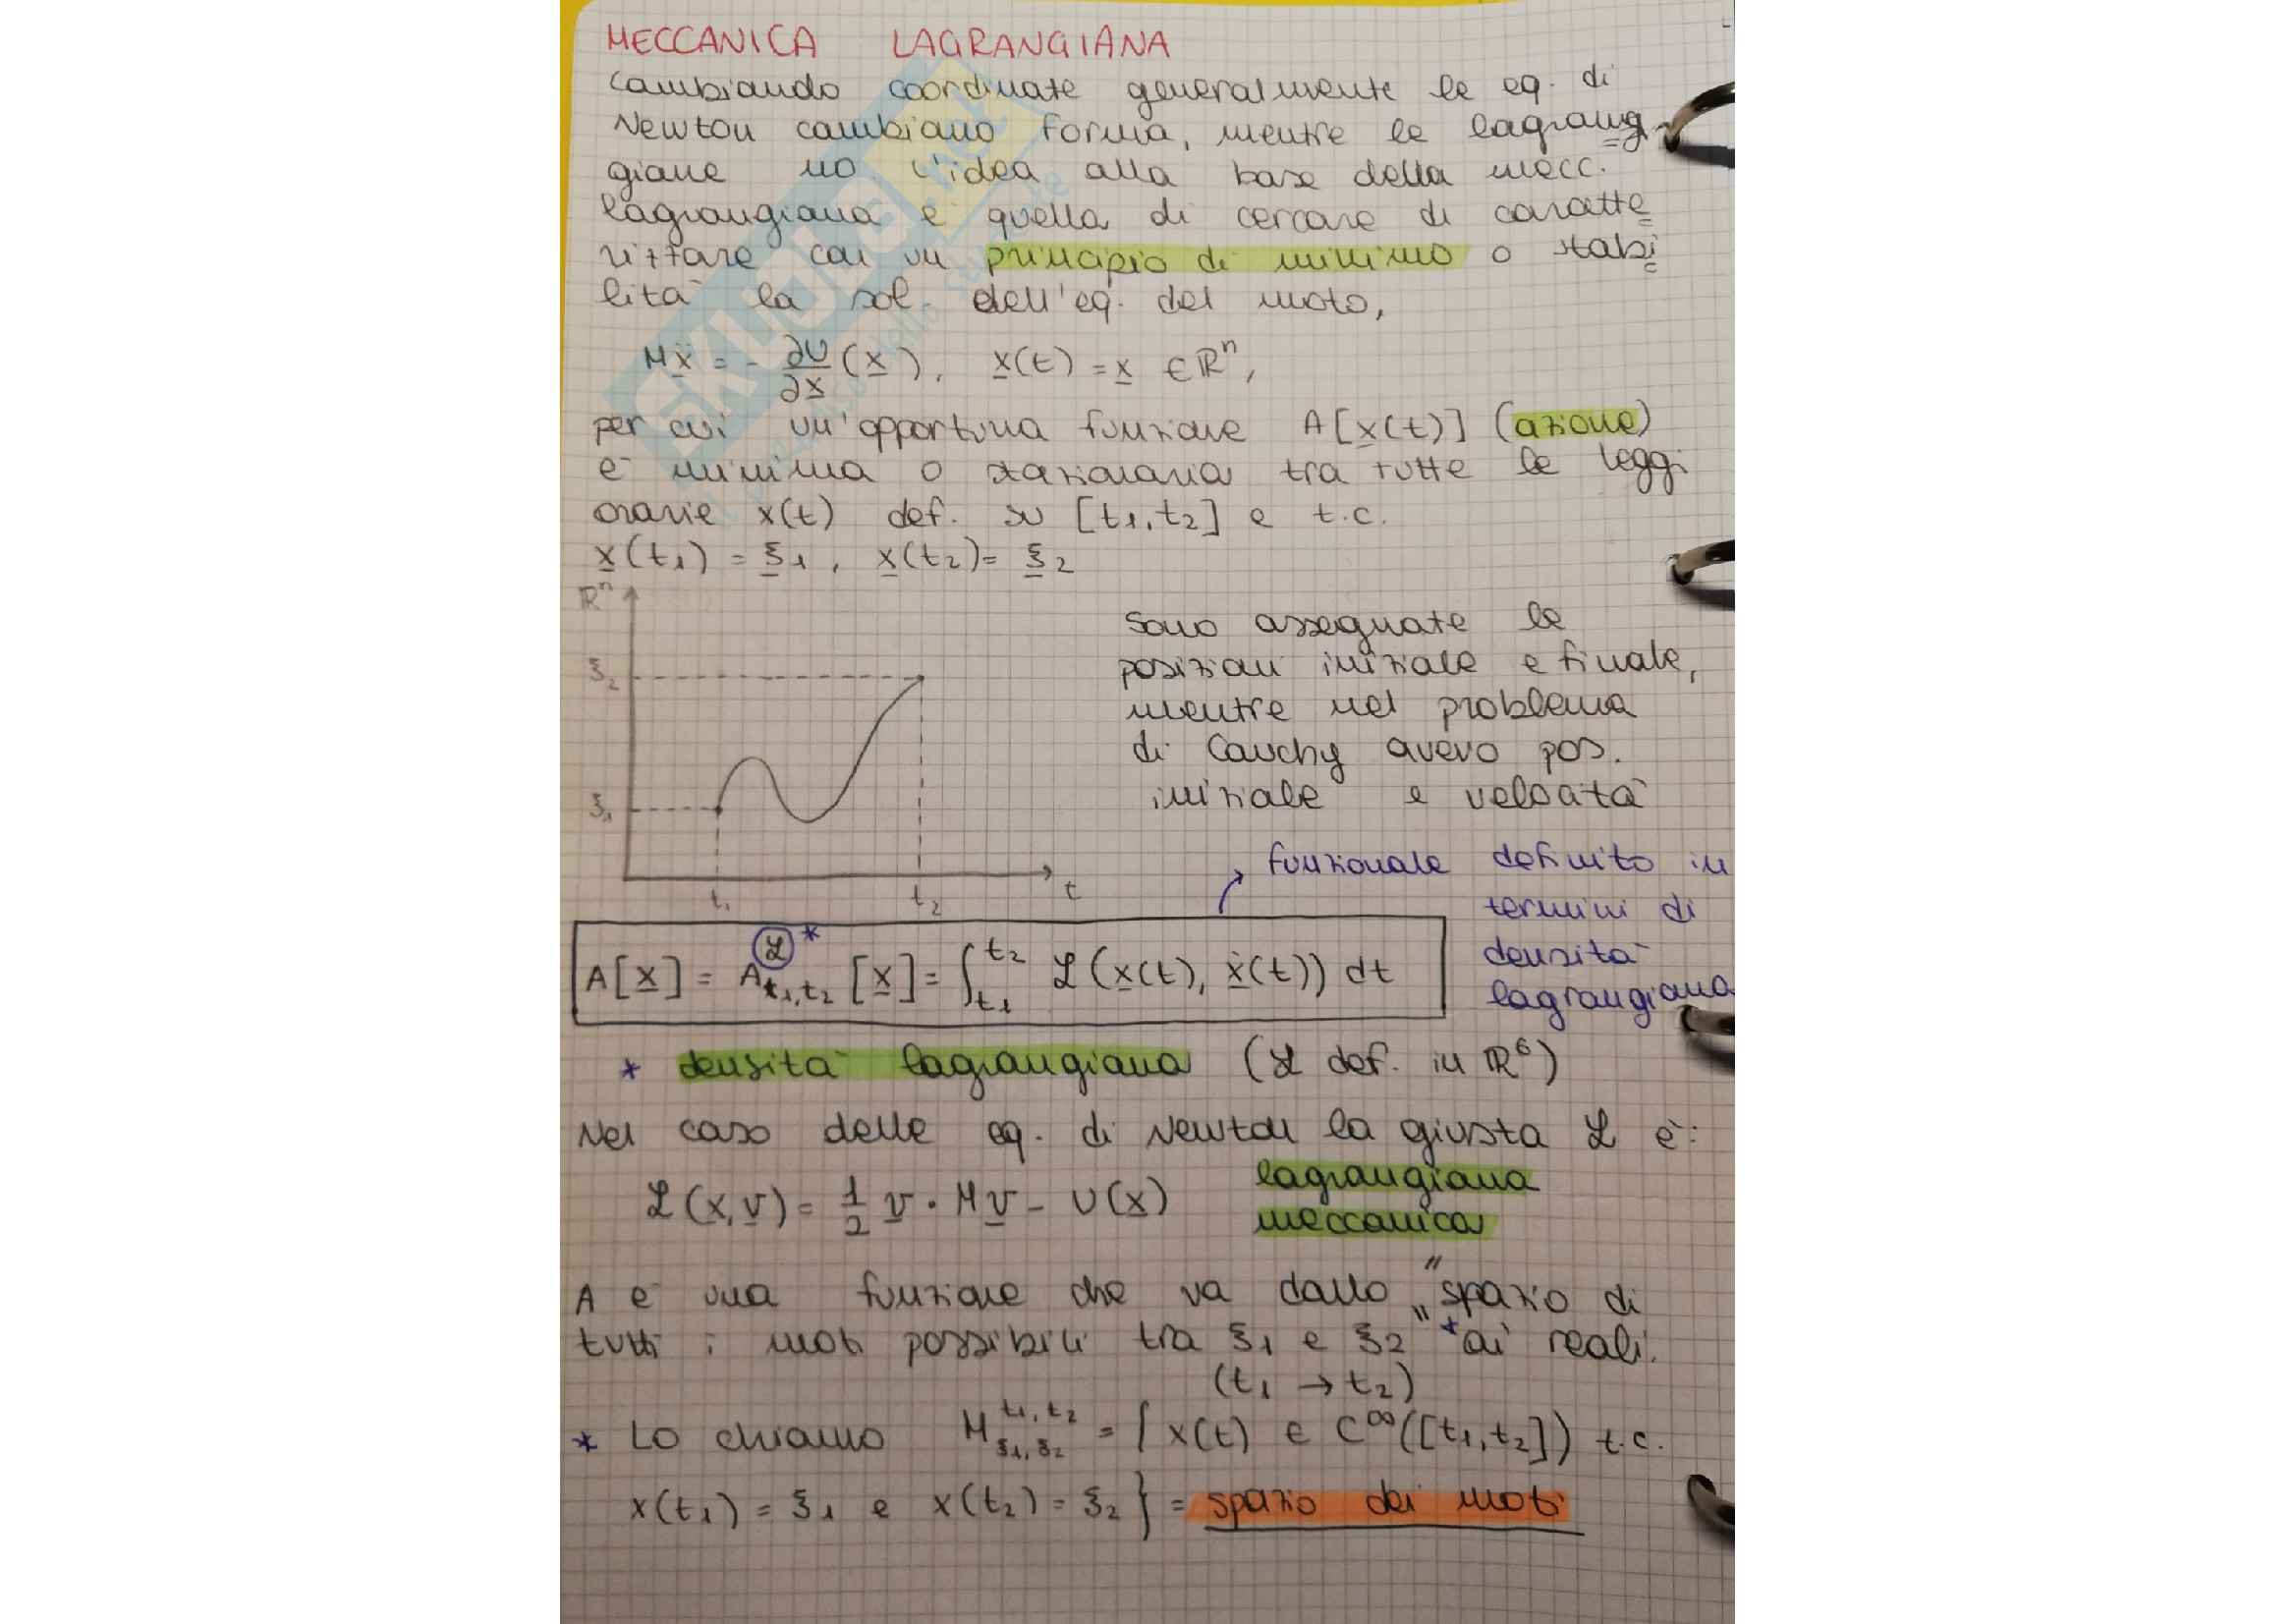 MECCANICA LAGRANGIANA
Cambiando coordinate generalmente le eq. di
Newton cambiano forma, mentre le lagrang
giane no. L'idea alla base della mecc.
lagrangiana è quella di cercare di caratte
rizzare con un principio di minimo o stabi
lità la sol. dell'eq. del moto,
Mẍ = - ∂U/∂x (x), x(t) = x ∈ ℝⁿ,
per cui un'opportuna funzione A[x(t)] (azione)
è minima o stazionaria tra tutte le leggi
orarie x(t) def. su [t₁,t₂] e t.c.
x(t₁) = ξ₁, x(t₂) = ξ₂
ℝⁿ
ξ₂
ξ₁
t₁ t₂ t
Sono assegnate le
posizioni iniziale e finale,
mentre nel problema
di Cauchy avevo pos.
iniziale e velocità
funzionale definito in
termini di
densità
lagrangiana
A[x] = A^ℒ*_{t₁,t₂} [x] = ∫_{t₁}^{t₂} ℒ(x(t), ẋ(t)) dt
* densità lagrangiana (ℒ def. in ℝ⁶)
Nel caso delle eq. di Newton la giusta ℒ è:
ℒ(x,v) = 1/2 v · Mv - U(x) lagrangiana
meccanica
A è una funzione che va dallo "spazio di
tutti i moti possibili tra ξ₁ e ξ₂"* ai reali.
(t₁ → t₂)
* Lo chiamo M^{t₁,t₂}_{ξ₁,ξ₂} = { x(t) ∈ C^∞([t₁,t₂]) t.c.
x(t₁) = ξ₁ e x(t₂) = ξ₂ } = spazio dei moti